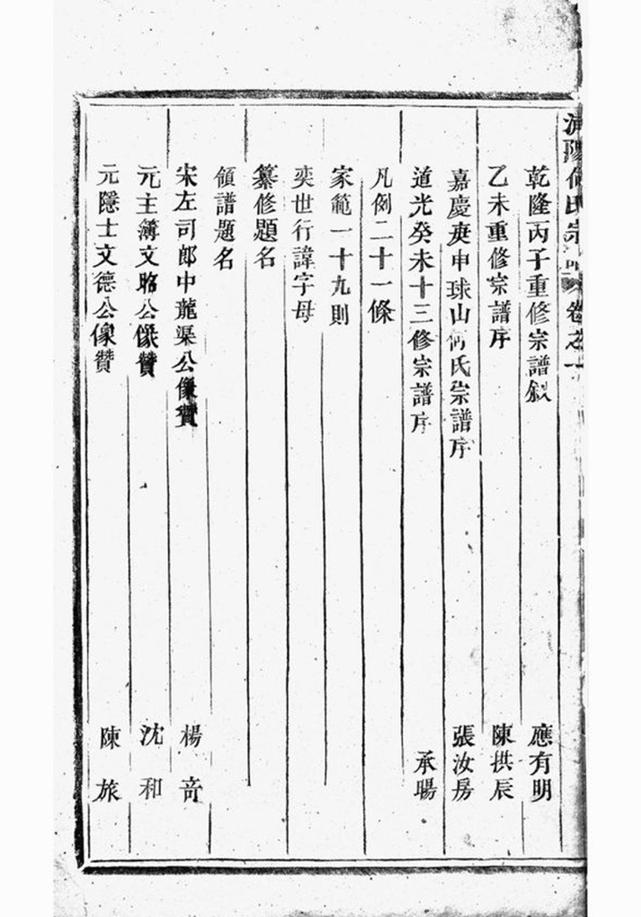 浦陽何氏宗譜 卷之一
乾隆丙子重修宗譜叙 應有明
乙未重修宗譜序 陳拱辰
嘉慶庚申球山何氏宗譜序 張汝房
道光癸未十三修宗譜序 承暘
凡例二十一條
家範一十九則
奕世行諱字母
纂修題名
領譜題名
宋左司郎中龍渠公像贊 楊奇
元主簿文昭公像贊 沈和
元隱士文德公像贊 陳旅